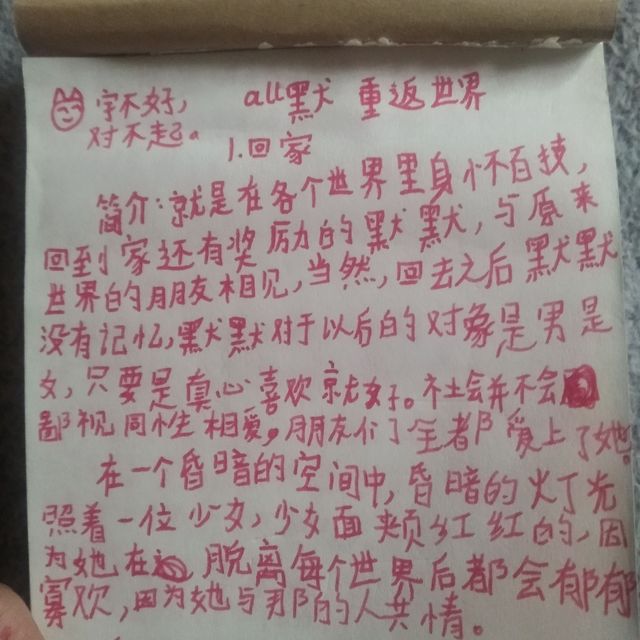 字不好，
对不起。
all默 重返世界
1.回家
简介：就是在各个世界里身怀百技，
回到家还有奖厉力的默默，与原来
世界的朋友相见，当然，回去之后默默
没有记忆，默默对于以后的对象是男是
女，只要是真心喜欢就好。社会并不会
鄙视同性相爱。朋友们了全都爱上了她。
在一个昏暗的空间中，昏暗的火丁光
照着一位少女，少女面颊红红的，因
为她在 脱离每个世界后都会郁郁
寡欢，因为她与那的人共情。